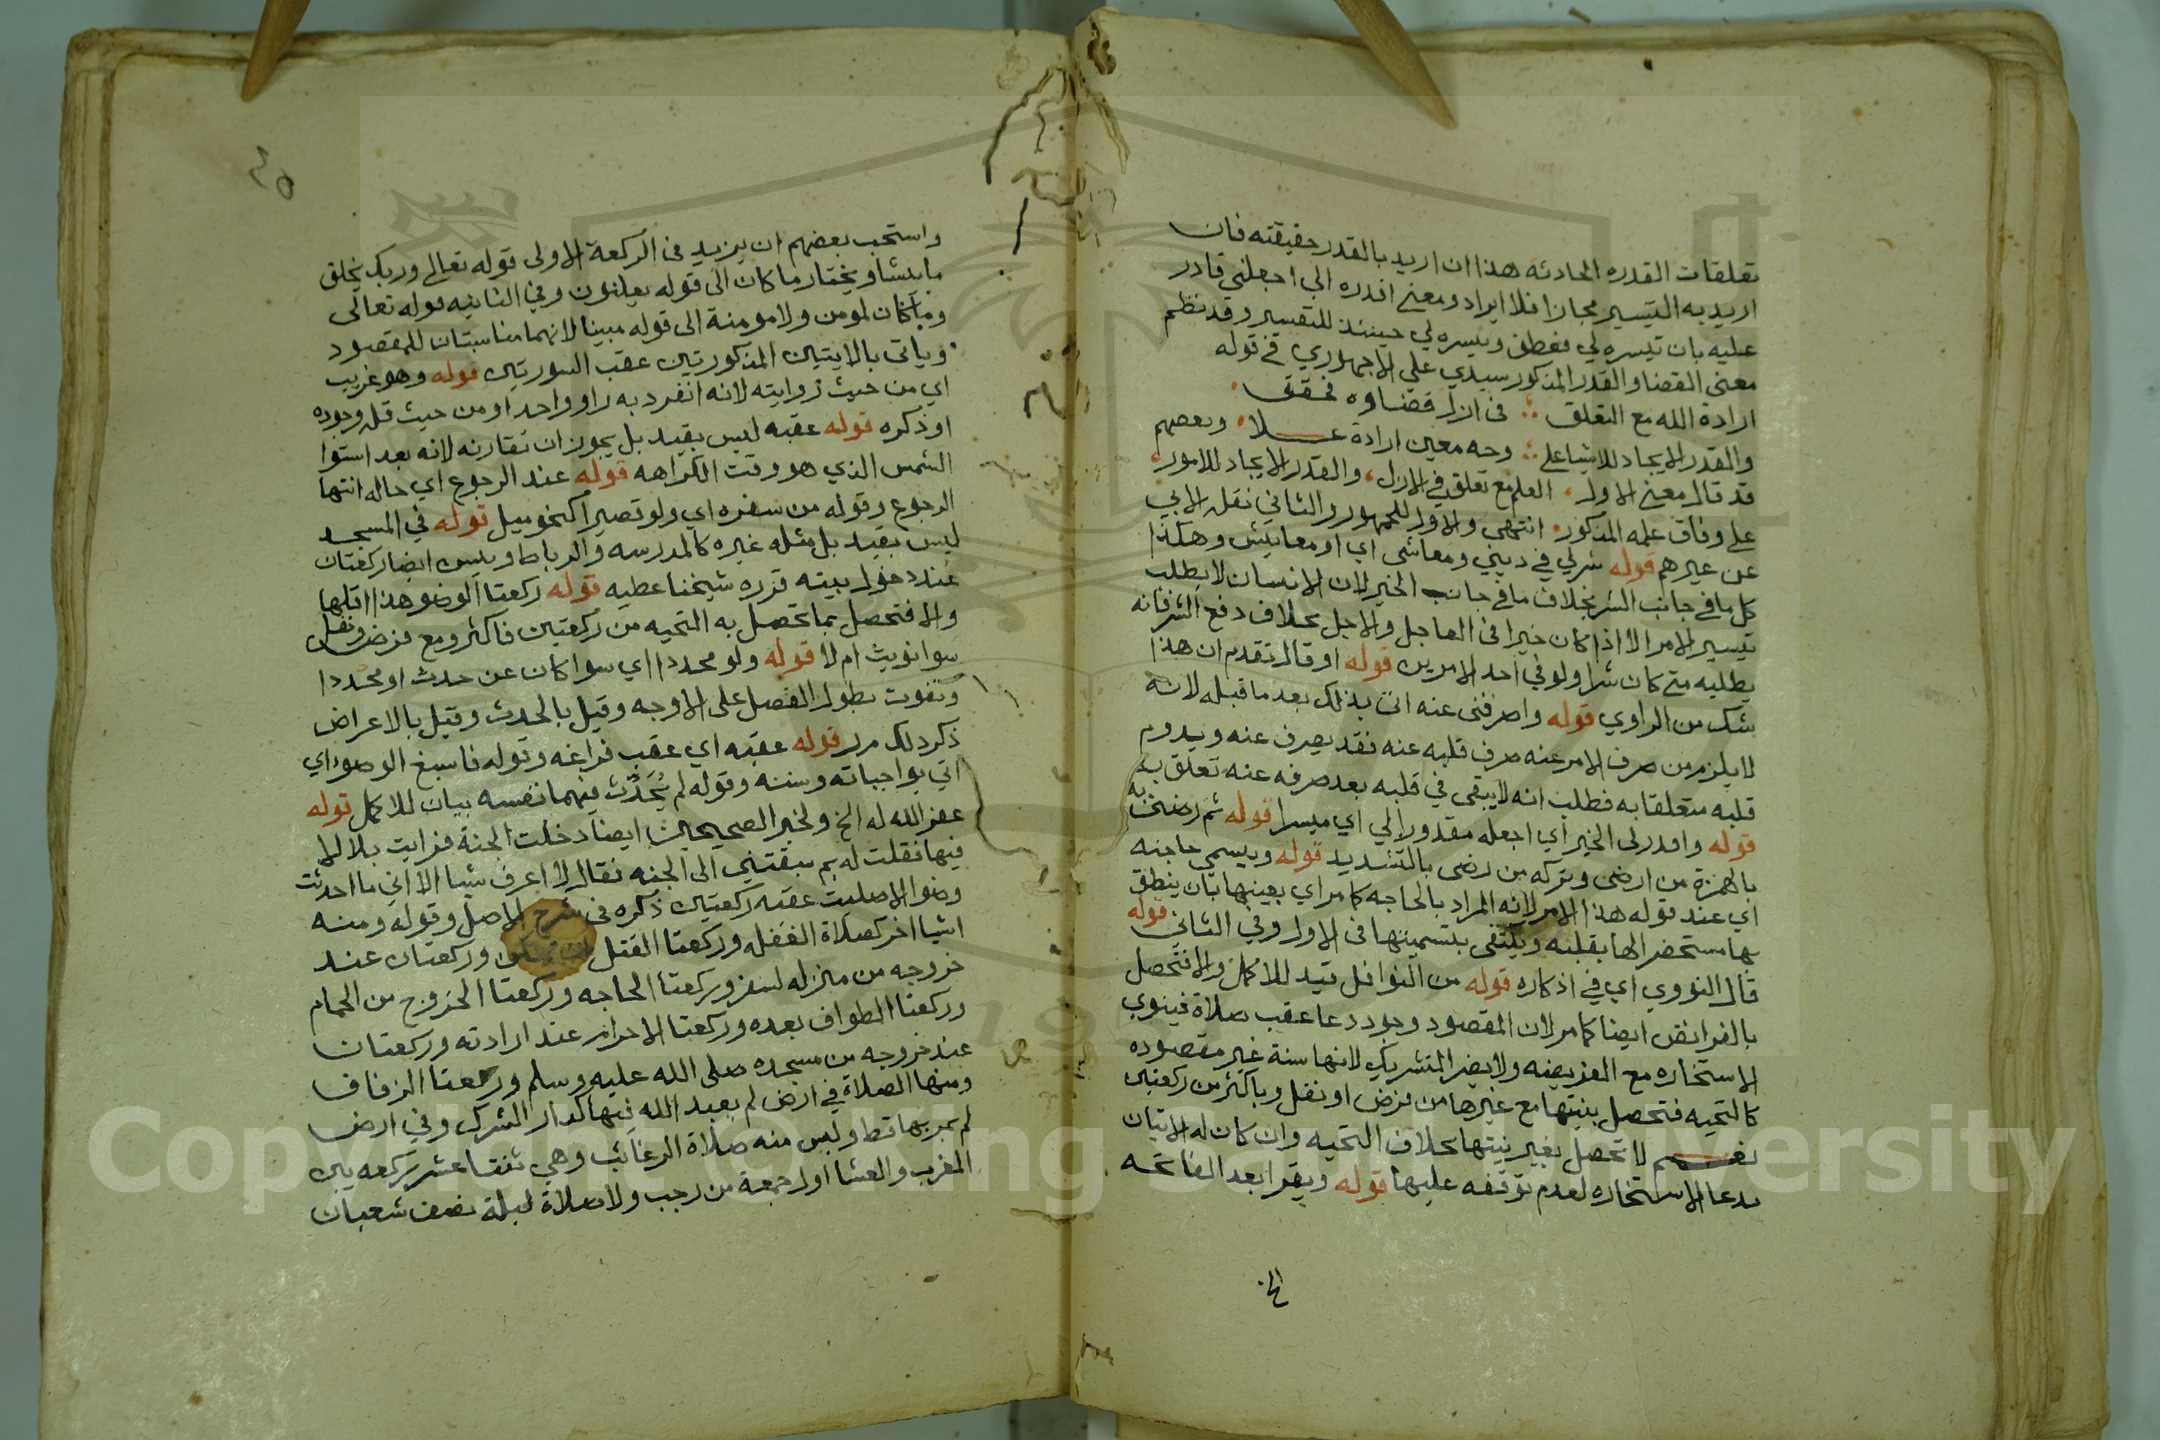 تعلقات القدره الحادثه هذا ان اريد بالقدر حقيقته فان
اريد به التيسير مجازا فلا ايراد ومعنى اقدره الى اجعلني قادر
عليه بان تيسره لي فعطف ويسره لي حينئذ للتفسير وقد نظم
معنى القضا والقدر المذكور سيدي علي الاجهوري في قوله
ارادة الله مع التعلق ∴ في ازل قضاوه فحقق
والقدر الايجاد للاشيا على ∴ وجه معين ارادة علا وبعضهم
قد قال معنى الاول العلم مع تعلق في الازل والقدر الايجاد للامور
على وفاق علمه المذكور انتهى والاول للجمهور والثاني نقل الابي
عن غيرهم قوله شر لي في ديني ومعاشى اي او معايش وهكذا
كل ما في جانب الشر بخلاف ما في جانب الخير لان الانسان لا يطلب
تيسير الامر الا اذا كان خيرا في العاجل والاجل بخلاف دفع الشر فانه
يطلبه متى كان شرا ولو في احد الامرين قوله او قال تقدم ان هذا
شك من الراوي قوله واصرفني عنه اتى بذلك بعد ما قبله لانه
لا يلزم من صرف الامر عنه صرف قلبه عنه فقد يصرف عنه ويدوم
قلبه متعلقا به فطلب انه لا يبقى في قلبه بعد صرفه عنه تعلق به
قوله واقدر لى الخير اي اجعله مقدورا لي اي ميسرا قوله ثم رضني به
بالهمزة من ارضى وتركه من رضى بالتشديد قوله ويسمي حاجته
اي عند قوله هذا الامر لانه المراد بالحاجه كما مر اي بعينها بان ينطق
بها مستحضرا لها بقلبه ويكتفى بتسميتها في الاول وفي الثاني قوله
قال النووي اي في اذكاره قوله من النوافل قيد للاكمل والا فتحصل
بالفرائض ايضا كما مر لان المقصود وجود دعا عقب صلاة فينوي
الاستخاره مع الفريضه ولا يضر التشريك لانها سنة غير مقصوده
كالتحيه فتحصل بنيتها مع غيرها من فرض او نفل وباكثر من ركعتين
نعم لا تحصل بغير نيتها بخلاف التحيه وان كان له الاتيان
بدعا الاستخاره لعدم توقفه عليها قوله ويقرا بعد الفاتحه
٤٥
واستحب بعضهم ان يزيد في الركعة الاولى قوله تعالى وربك يخلق
ما يشا ويختار ما كان الى قوله يعلنون وفي الثانيه قوله تعالى
وما كان لمومن ولا مومنة الى قوله مبينا لانهما مناسبتان للمقصود
وياتى بالايتين المذكورتين عقب السورتين قوله وهو غريب
اي من حيث روايته لانه انفرد به راو واحد او من حيث قل وجوده
او ذكره قوله عقبه ليس بقيد بل يجوز ان تقارنه لانه بعد استوا
الشمس الذي هو وقت الكراهه قوله عند الرجوع اي حاله انتها
الرجوع وقوله من سفره اي ولو قصيرا كنحو ميل قوله في المسجد
ليس بقيد بل مثله غيره كالمدرسه والرباط ويسن ايضا ركعتان
عند دخول بيته قرره شيخنا عطيه قوله ركعتا الوضو هذا اقلها
والا فتحصل بما تحصل به التحيه من ركعتين فاكثر ومع فرض ونفل
سوا نويت ام لا قوله ولو مجددا اي سوا كان عن حدث او مجددا
وتفوت بطول الفصل على الاوجه وقيل بالحدث وقيل بالاعراض
ذكر ذلك م ر قوله عقبه اي عقب فراغه وقوله فاسبغ الوضوء اي
اتي بواجباته وسننه وقوله لم يُحَدِّث فيهما نفسه بيان للاكمل قوله
غفر الله له الخ ولخبر الصحيحين ايضا دخلت الجنة فرايت بلالا
فيها فقلت له بم سبقتني الى الجنه فقال لا اعرف شيا الا اني ما احدثت
وضوا الا صليت عقبه ركعتين ذكره في شرح الاصل وقوله ومنه
اشيا اخر كصلاة الغفله وركعتا القتل وركعتان عند
خروجه من منزله لسفر وركعتا الحاجه وركعتا الخروج من الحمام
وركعتا الطواف بعده وركعتا الاحرام عند ارادته وركعتان
عند خروجه من مسجده صلى الله عليه وسلم وركعتا الزفاف
ومنها الصلاة في ارض لم يعبد الله فيها كدار الشرك وفي ارض
لم يمر بها قط وليس منه صلاة الرغائب وهي ثنتا عشر ركعه بين
المغرب والعشا اول جمعة من رجب ولا صلاة ليلة نصف شعبان
Copyright © King Saud University